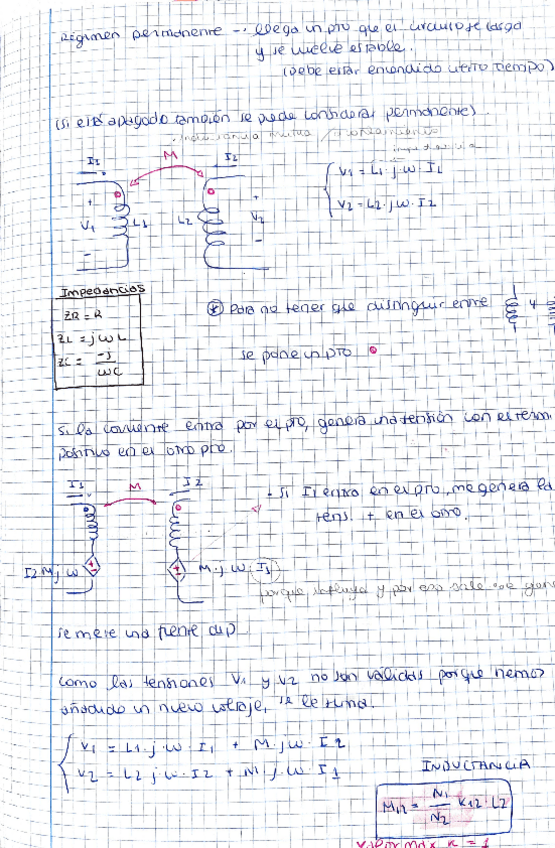 Régimen permanente -- llega un pto que el circuito se carga
y se vuelve estable.
(debe estar encendido cierto tiempo)
(si está apagado también se puede considerar permanente)
inductancia mutua /
I1 M I2
+ V1 - L1 L2 + V2 -
V1 = L1 · j · ω · I1
V2 = L2 · j ω · I2
Impedancias
ZR = R
ZL = jωL
ZC = -J / ωC
* Para no tener que distinguir entre y
se pone un pto
Si la corriente entra por el pto, genera una tensión con el term.
positivo en el otro pto.
I1 M I2
- Si I1 entra en el pto, me genera la
tens. + en el otro.
I2·M·j·ω M·j·ω·I1
porque influya y por eso sale ese
se mete una fuente dep.
Como las tensiones V1 y V2 no son válidas porque hemos
añadido un nuevo voltaje, se le suma.
V1 = L1 · j · ω · I1 + M · jω · I2
V2 = L2 j · ω · I2 + M j ω · I1
INDUCTANCIA
M12 = N1 / N2 K12 · L2
Valor max K = 1